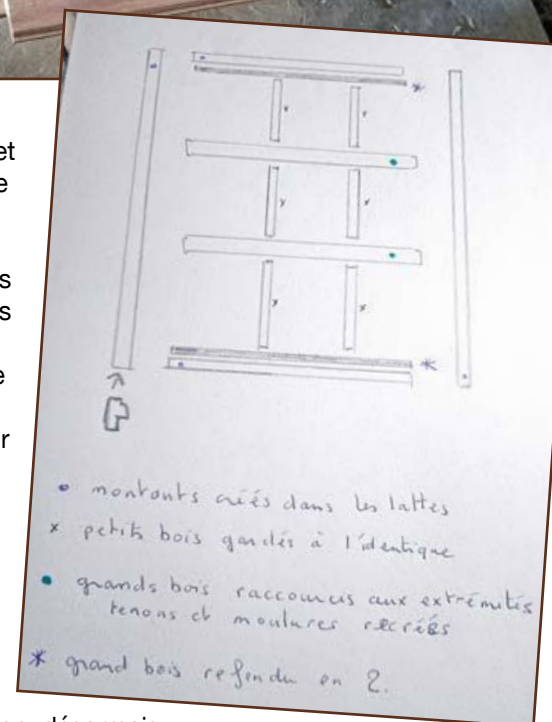 et
e
s
s
e
r
• montants créés dans les lattes
x petits bois gardés à l'identique
• grands bois raccourcis aux extrémités
tenons et moulures recréés
* grand bois refendu en 2.